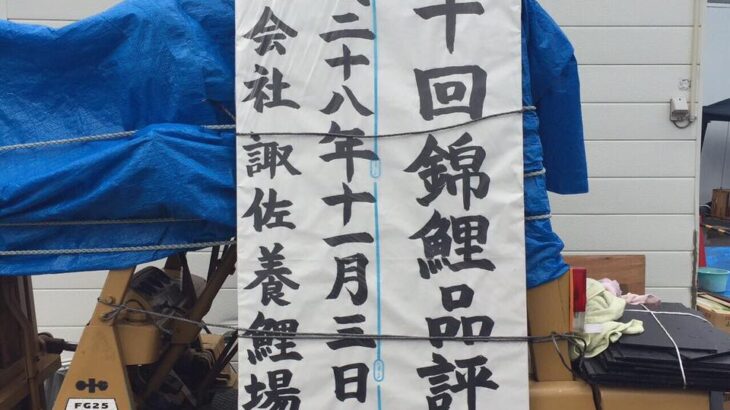 十回錦鯉品評
二十八年十一月三日
会社 諏佐養鯉場
FG25